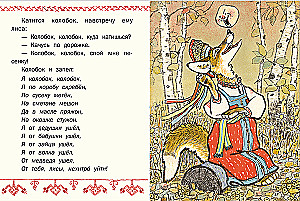 Катится колобок, навстречу ему
лиса:
— Колобок, колобок, куда катишься?
— Качусь по дорожке.
— Колобок, колобок, спой мне пе-
сенку!
Колобок и запел:
Я колобок, колобок,
Я по коробу скребён,
По сусеку метён,
На сметане мешон
Да в масле пряжон,
На окошке стужон.
Я от дедушки ушёл,
Я от бабушки ушёл,
Я от зайца ушёл,
Я от волка ушёл,
От медведя ушёл,
От тебя, лисы, нехитро уйти!